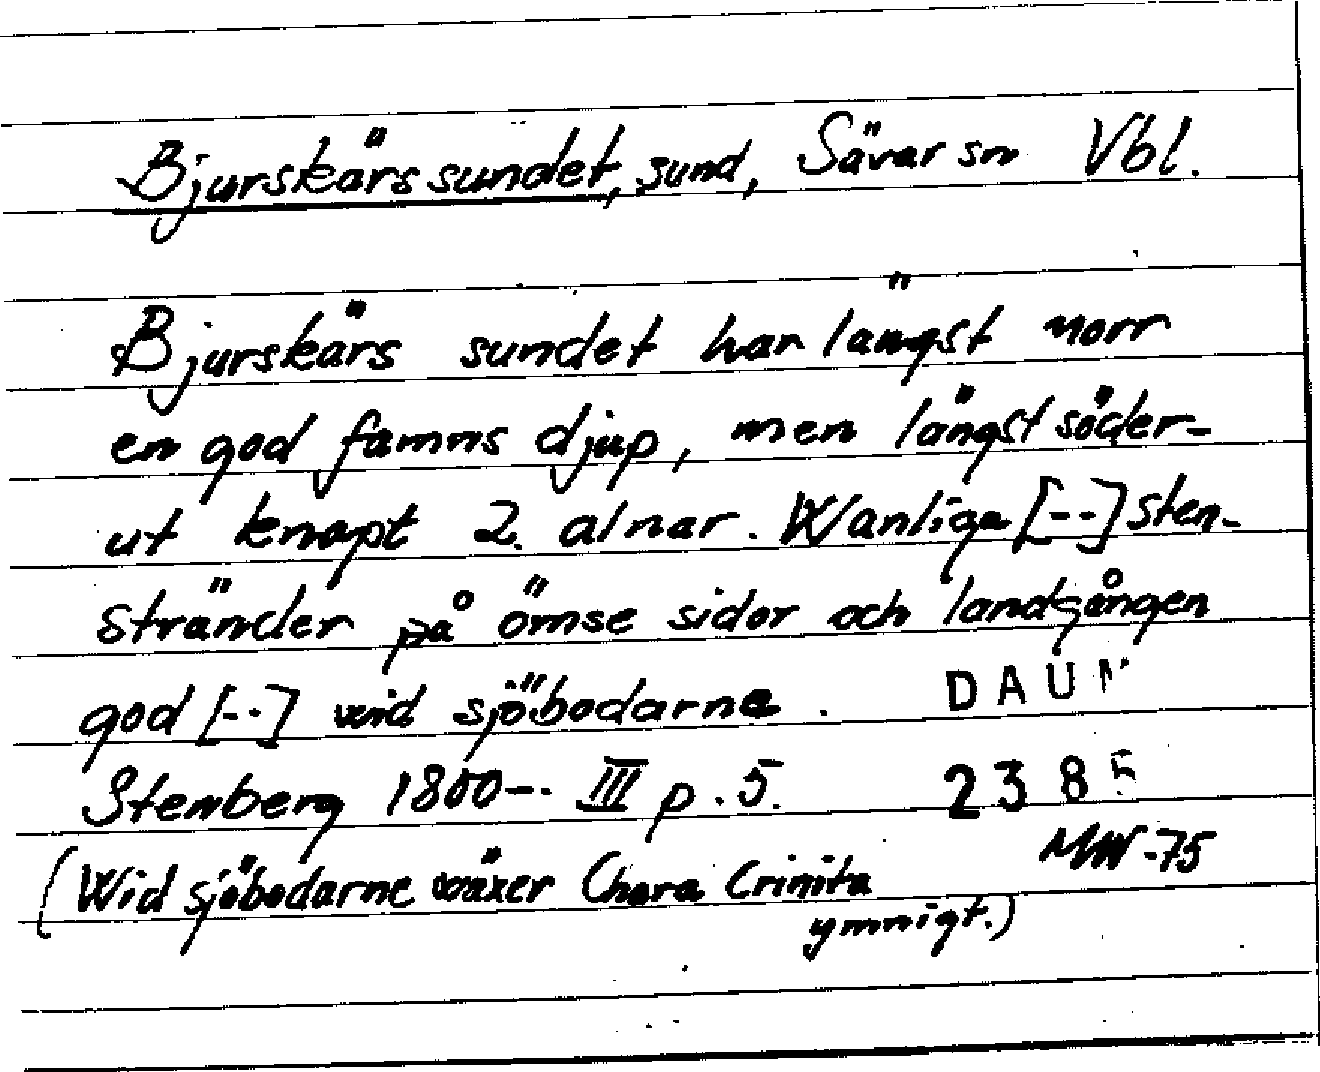 Bjurskärssundet, sund, Sävar sn Vbl.
Bjurskärs sundet har längst norr
en god famns djup, men längst söder-
ut knapt 2 alnar. Wanliga [--] sten-
stränder på ömse sidor och landgången
god [--] wid sjöbodarne.
DAUM
Stenberg 1800-. III p. 5.
2385
MW-75
(Wid sjöbodarne wäxer Chara Crinita
ymnigt.)